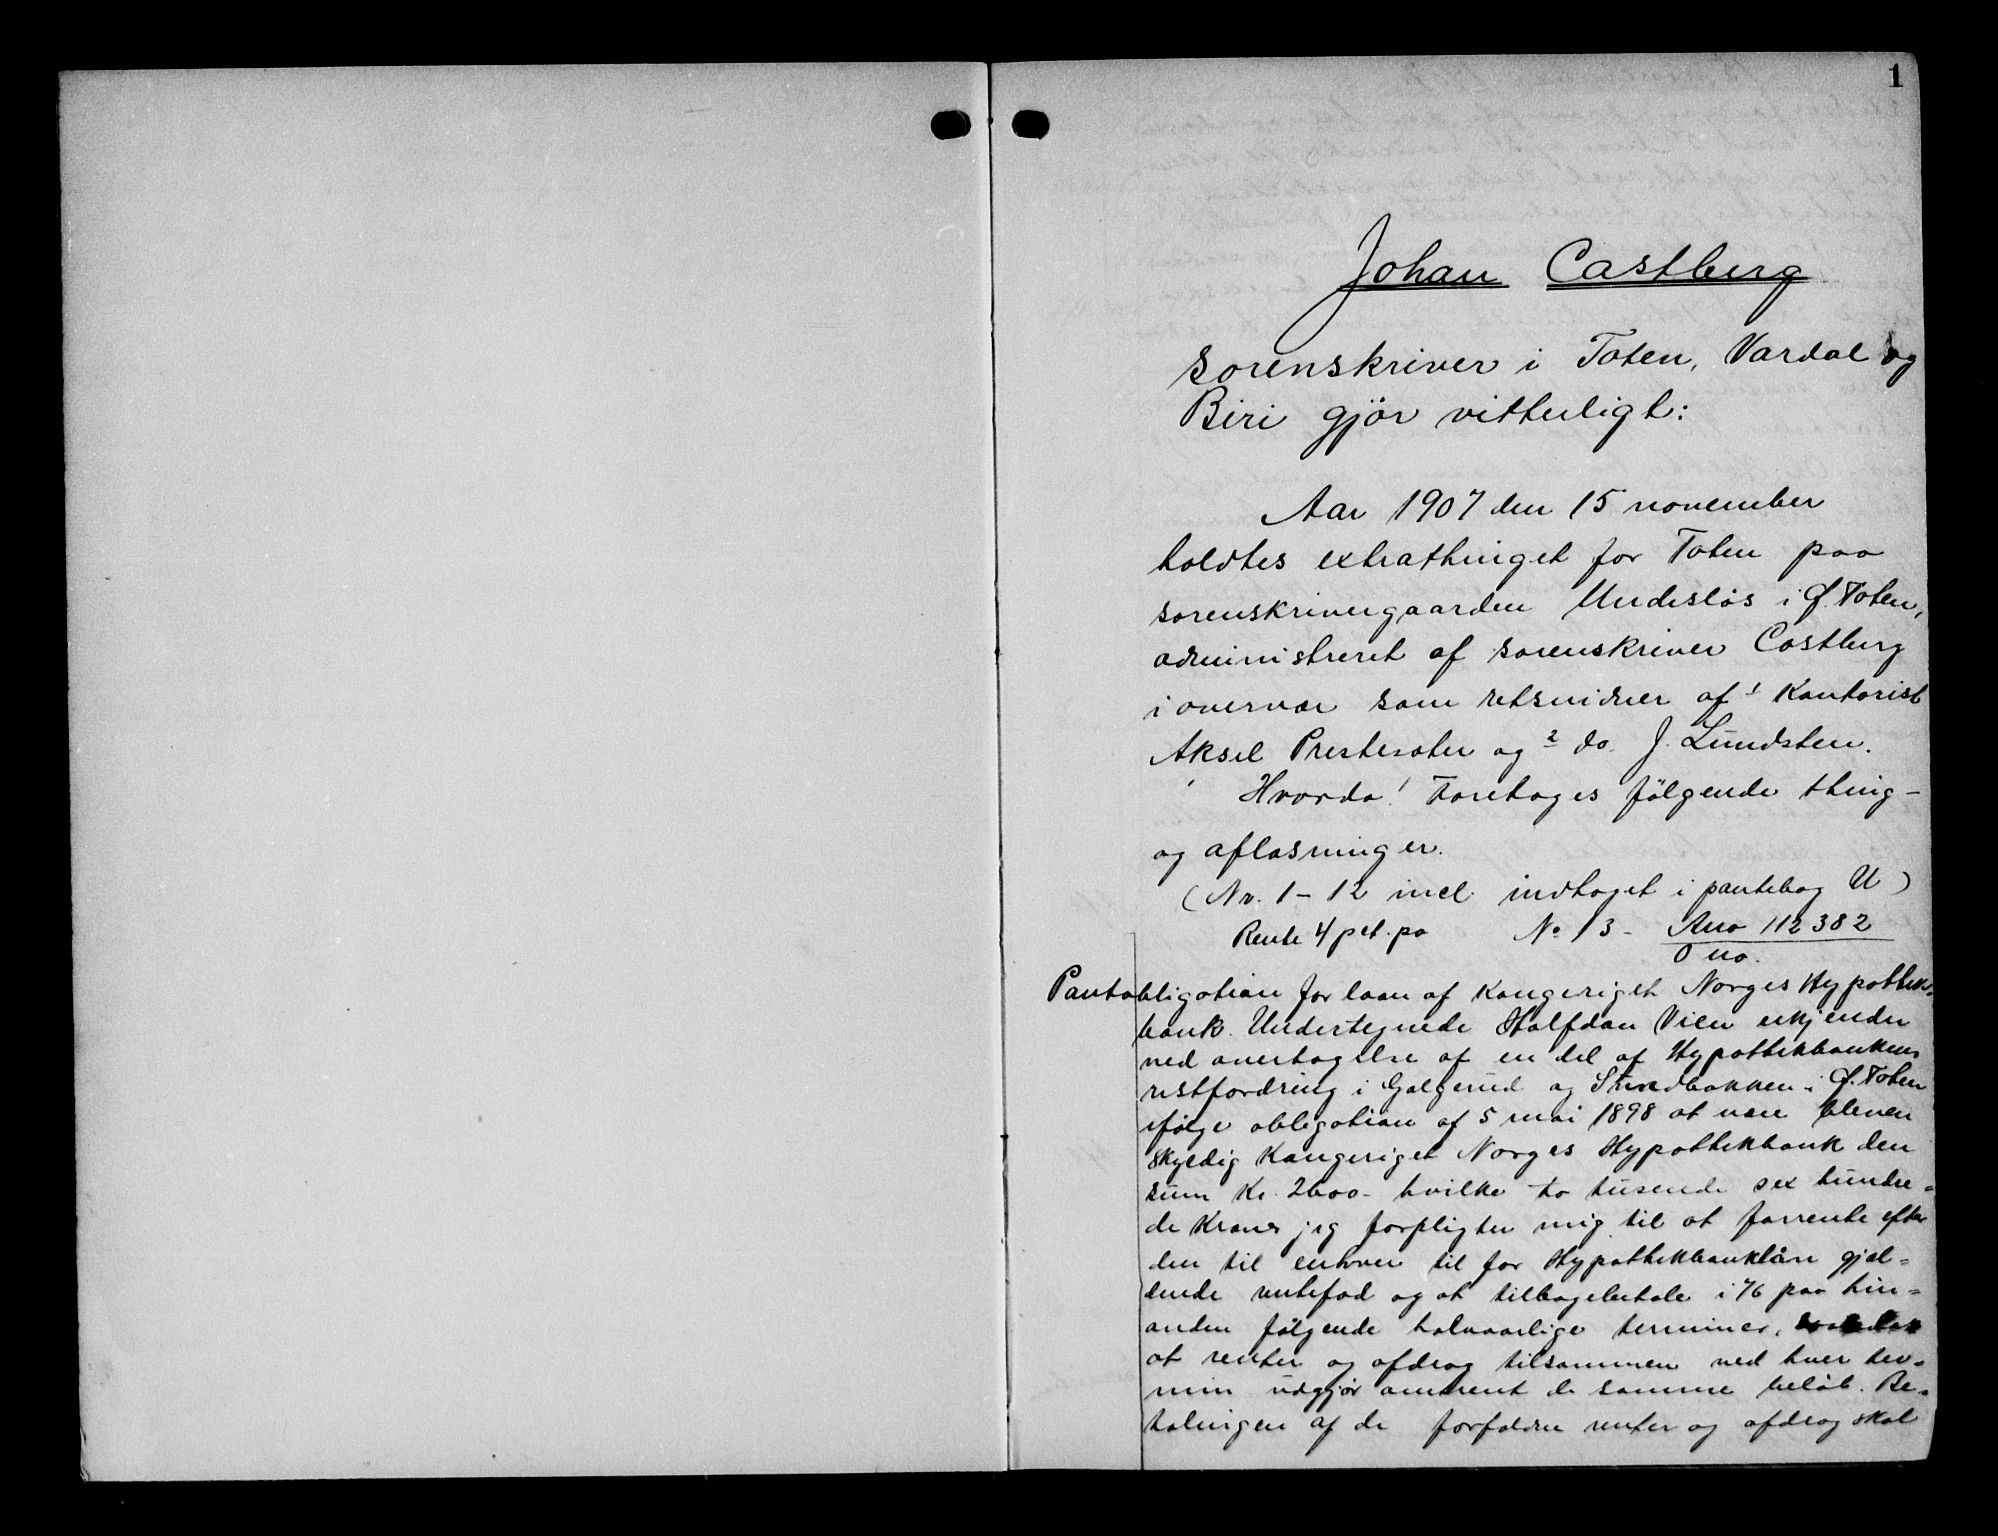 1
Johan Castberg
sorenskriver i Toten, Vardal og
Biri gjör vitterligt:
Aar 1907 den 15 november
holdtes extrathinget for Toten paa
sorenskrivergaarden Undeslös i Ø. Toten,
administreret af sorenskriver Castberg
i overvær som retsvidner af 1 Kontorist
Aksel Prestesæter og 2 do. J. Lundsten.
Hvorda! Foretoges følgende thing-
og aflæsninger.
(Nr. 1-12 incl. indtaget i pantebog U)
Rente 4 pct. pa No 13 - Ano 112382
O no.
Pantobligation for laan af Kongeriget Norges Hypotheks-
bank. Undertegnede Halfdan Vien erkjender
ved overtagelse af en del af Hypothekbankens
restfordring i Galgerud og Sundbakken i Ø. Toten
ifølge obligation af 5 mai 1898 at være bleven
skyldig Kongeriget Norges Hypothekbank den
sum Kr. 2600- hvilke to tusende sex hundre=
de Kroner jeg forpligter mig til at forrente efter
den til enhver til for Hypothekbanklån gjæl=
dende rentefod og at tilbagebetale i 76 paa hin=
anden følgende halvaarlige terminer,
at renter og afdrag tilsammen ved hver ter=
min udgjør omtrent de samme beløb. Be=
talingen af de forfaldne renter og afdrag skal